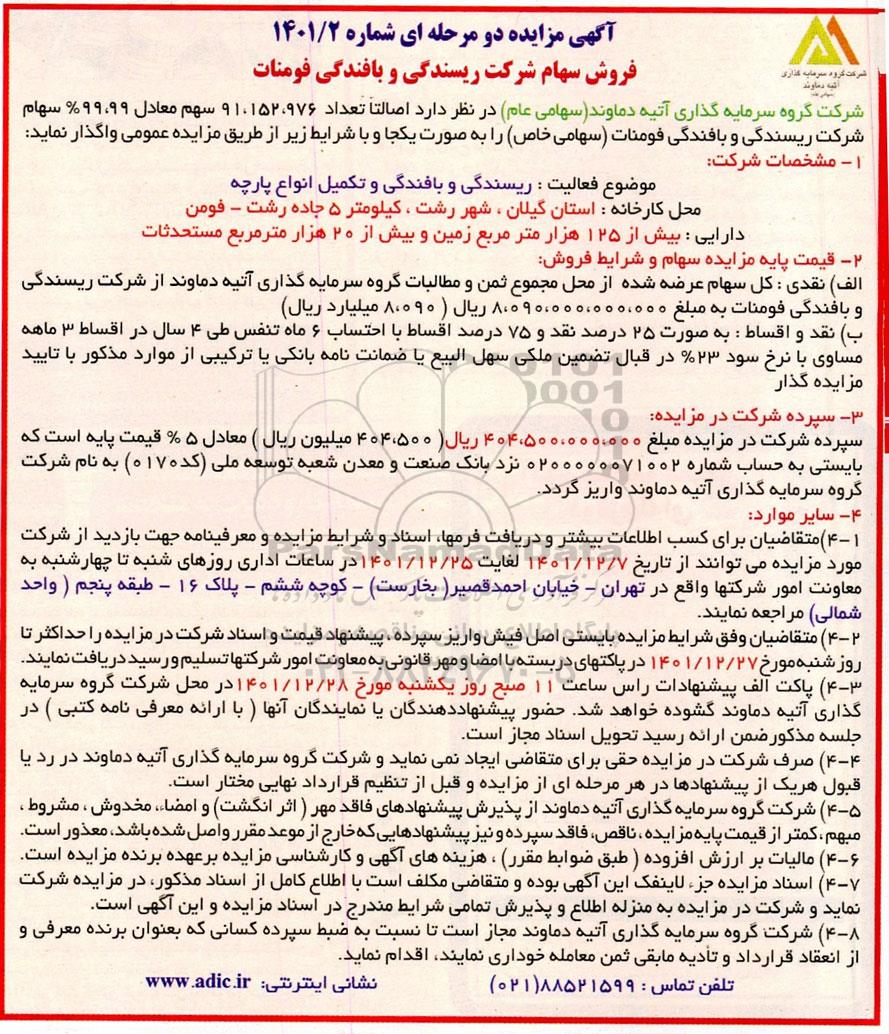 آگهی مزایده دو مرحله ای شماره ۱۴۰۱/۲
فروش سهام شرکت ریسندگی و بافندگی فومنات
شرکت گروه سرمایه گذاری
آتیه دماوند
شرکت گروه سرمایه گذاری آتیه دماوند(سهامی عام) در نظر دارد اصالتاً تعداد ۹۱،۱۵۲،۹۷۶ سهم معادل ۹۹،۹۹% سهام
شرکت ریسندگی و بافندگی فومنات (سهامی خاص) را به صورت یکجا و با شرایط زیر از طریق مزایده عمومی واگذار نماید:
۱- مشخصات شرکت:
موضوع فعالیت : ریسندگی و بافندگی و تکمیل انواع پارچه
محل کارخانه : استان گیلان ، شهر رشت ، کیلومتر ۵ جاده رشت - فومن
دارایی : بیش از ۱۲۵ هزار متر مربع زمین و بیش از ۲۰ هزار مترمربع مستحدثات
۲- قیمت پایه مزایده سهام و شرایط فروش:
الف) نقدی : کل سهام عرضه شده از محل مجموع ثمن و مطالبات گروه سرمایه گذاری آتیه دماوند از شرکت ریسندگی
و بافندگی فومنات به مبلغ ۸،۰۹۰،۰۰۰،۰۰۰،۰۰۰ ریال ( ۸،۰۹۰ میلیارد ریال)
ب) نقد و اقساط : به صورت ۲۵ درصد نقد و ۷۵ درصد اقساط با احتساب ۶ ماه تنفس طی ۴ سال در اقساط ۳ ماهه
مساوی با نرخ سود ۲۳% در قبال تضمین ملکی سهل البیع یا ضمانت نامه بانکی یا ترکیبی از موارد مذکور با تایید
مزایده گذار
۳- سپرده شرکت در مزایده:
سپرده شرکت در مزایده مبلغ ۴۰۴،۵۰۰،۰۰۰،۰۰۰ ریال( ۴۰۴،۵۰۰ میلیون ریال ) معادل ۵ % قیمت پایه است که
بایستی به حساب شماره ۰۲۰۰۰۰۰۰۷۱۰۰۲ نزد بانک صنعت و معدن شعبه توسعه ملی (کد۰۱۷۰) به نام شرکت
گروه سرمایه گذاری آتیه دماوند واریز گردد.
۴- سایر موارد:
۴-۱)متقاضیان برای کسب اطلاعات بیشتر و دریافت فرمها، اسناد و شرایط مزایده و معرفینامه جهت بازدید از شرکت
مورد مزایده می توانند از تاریخ ۱۴۰۱/۱۲/۷ لغایت ۱۴۰۱/۱۲/۲۵در ساعات اداری روزهای شنبه تا چهارشنبه به
معاونت امور شرکتها واقع در تهران - خیابان احمدقصیر( بخارست) - کوچه ششم - پلاک ۱۶ - طبقه پنجم ( واحد
شمالی) مراجعه نمایند.
۴-۲) متقاضیان وفق شرایط مزایده بایستی اصل فیش واریز سپرده ، پیشنهاد قیمت و اسناد شرکت در مزایده را حداکثر تا
روز شنبه مورخ ۱۴۰۱/۱۲/۲۷ در پاکتهای در بسته با امضا و مهر قانونی به معاونت امور شرکتها تسلیم و رسید دریافت نمایند.
۴-۳) پاکت الف پیشنهادات راس ساعت ۱۱ صبح روز یکشنبه مورخ ۱۴۰۱/۱۲/۲۸در محل شرکت گروه سرمایه
گذاری آتیه دماوند گشوده خواهد شد. حضور پیشنهاددهندگان یا نمایندگان آنها ( با ارائه معرفی نامه کتبی ) در
جلسه مذکورضمن ارائه رسید تحویل اسناد مجاز است.
۴-۴) صرف شرکت در مزایده حقی برای متقاضی ایجاد نمی نماید و شرکت گروه سرمایه گذاری آتیه دماوند در رد یا
قبول هریک از پیشنهادها در هر مرحله ای از مزایده و قبل از تنظیم قرارداد نهایی مختار است.
۴-۵) شرکت گروه سرمایه گذاری آتیه دماوند از پذیرش پیشنهادهای فاقد مهر ( اثر انگشت) و امضاء، مخدوش ، مشروط ،
مبهم ، کمتر از قیمت پایه مزایده ، ناقص، فاقد سپرده و نیز پیشنهادهایی که خارج از موعد مقرر واصل شده باشد، معذور است.
۴-۶) مالیات بر ارزش افزوده ( طبق ضوابط مقرر) ، هزینه های آگهی و کارشناسی مزایده برعهده برنده مزایده است.
۴-۷) اسناد مزایده جزء لاینفک این آگهی بوده و متقاضی مکلف است با اطلاع کامل از اسناد مذکور، در مزایده شرکت
نماید و شرکت در مزایده به منزله اطلاع و پذیرش تمامی شرایط مندرج در اسناد مزایده و این آگهی است.
۴-۸) شرکت گروه سرمایه گذاری آتیه دماوند مجاز است تا نسبت به ضبط سپرده کسانی که بعنوان برنده معرفی و
از انعقاد قرارداد و تأدیه مابقی ثمن معامله خودداری نمایند، اقدام نماید.
تلفن تماس : ۸۸۵۲۱۵۹۹(۰۲۱) نشانی اینترنتی: www.adic.ir
ParsNamadData